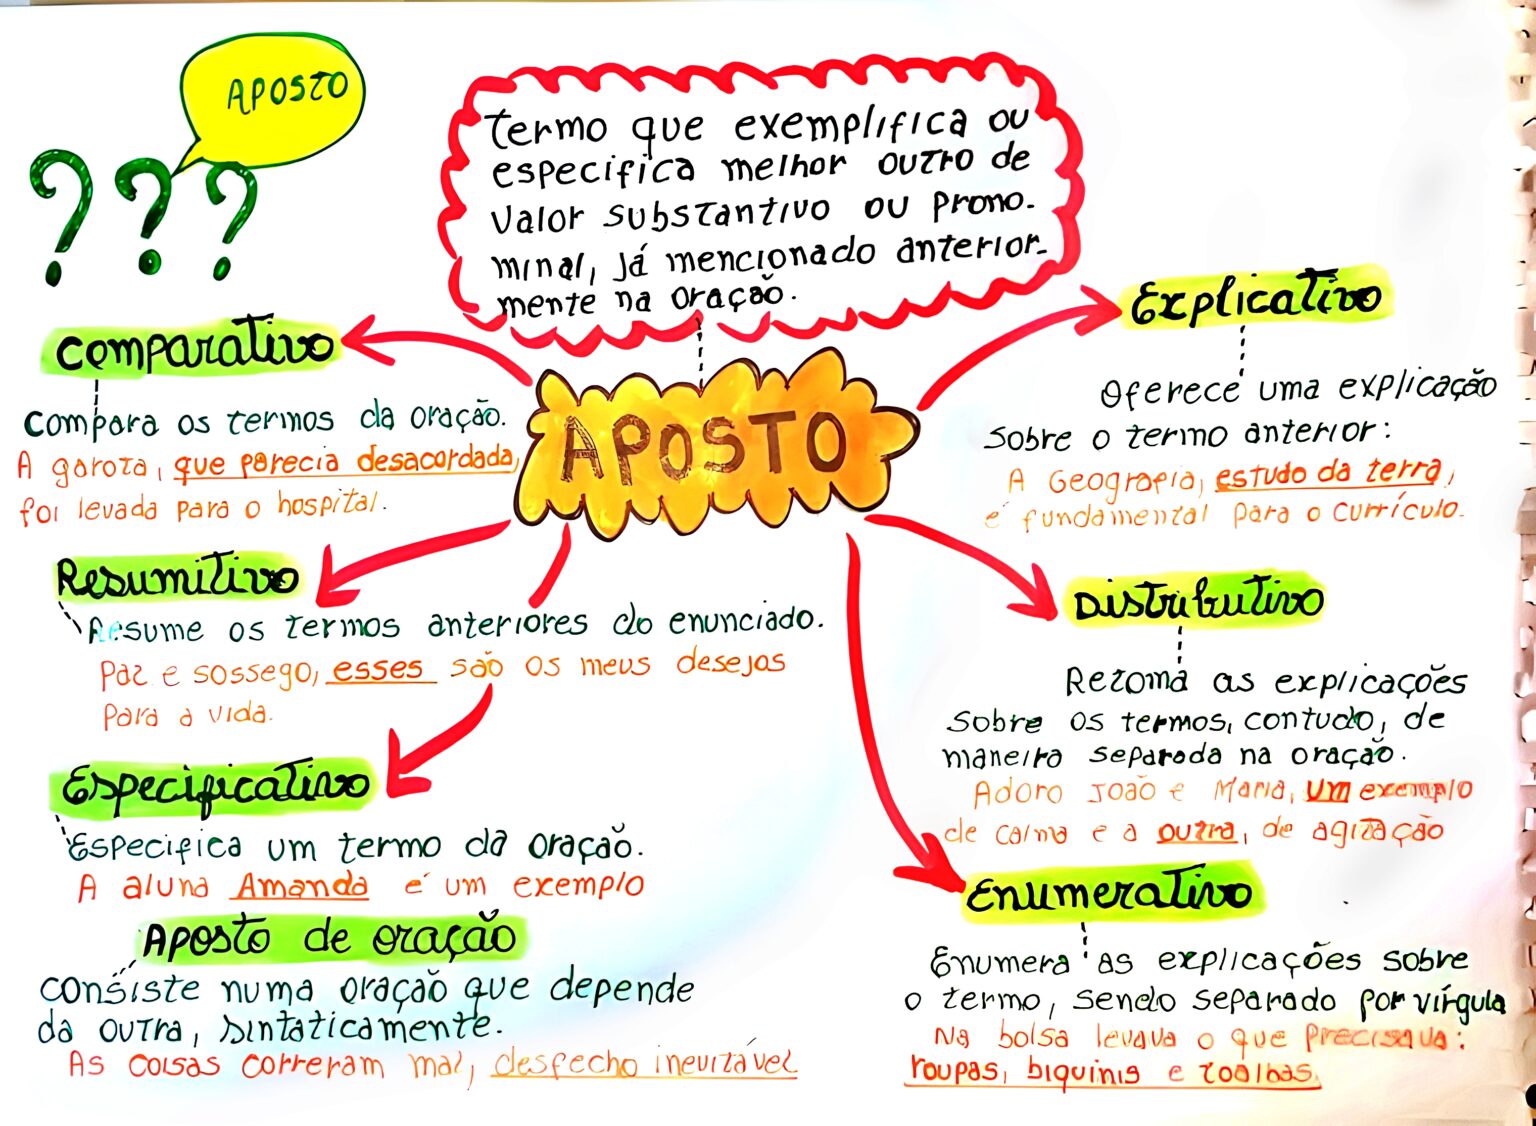 APOSTO
termo que exemplifica ou
especifica melhor outro de
valor substantivo ou prono-
minal, já mencionado anterior-
mente na oração.
APOSTO
Comparativo
Compara os termos da oração.
A garota, que parecia desacordada,
foi levada para o hospital.
Resumitivo
Resume os termos anteriores do enunciado.
Paz e sossego, esses são os meus desejos
para a vida.
Especificativo
Especifica um termo da oração.
A aluna Amanda é um exemplo
Aposto de oração
Consiste numa oração que depende
da outra, sintaticamente.
As coisas correram mal, desfecho inevitável
Explicativo
Oferece uma explicação
sobre o termo anterior:
A Geografia, estudo da terra,
é fundamental para o currículo.
Distributivo
Retoma as explicações
sobre os termos, contudo, de
maneira separada na oração.
Adoro João e Maria, um exemplo
de calma e a outra, de agitação
Enumerativo
Enumera as explicações sobre
o termo, sendo separado por vírgula
Na bolsa levava o que precisava:
roupas, biquinis e toalhas.